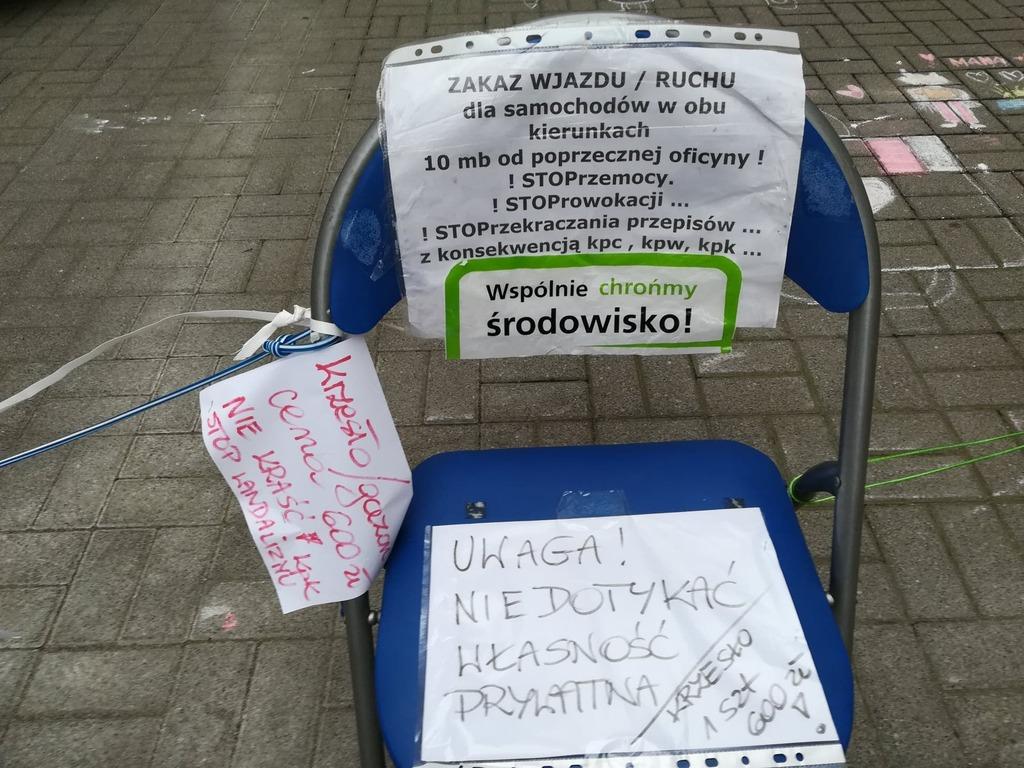 ZAKAZ WJAZDU / RUCHU
dla samochodów w obu
kierunkach
10 mb od poprzecznej oficyny !
! STOPrzemocy.
! STOProwokacji ...
! STOPrzekraczania przepisów ...
z konsekwencją kpc , kpw, kpk ...
Wspólnie chrońmy
środowisko!
Krzesło/gazon
cena 600 zł
NIE KRAŚĆ # kpk
STOP WANDALIZM
UWAGA!
NIE DOTYKAĆ
WŁASNOŚĆ
PRYWATNA
KRZESŁO
1 SZT
600 zł
MAMA